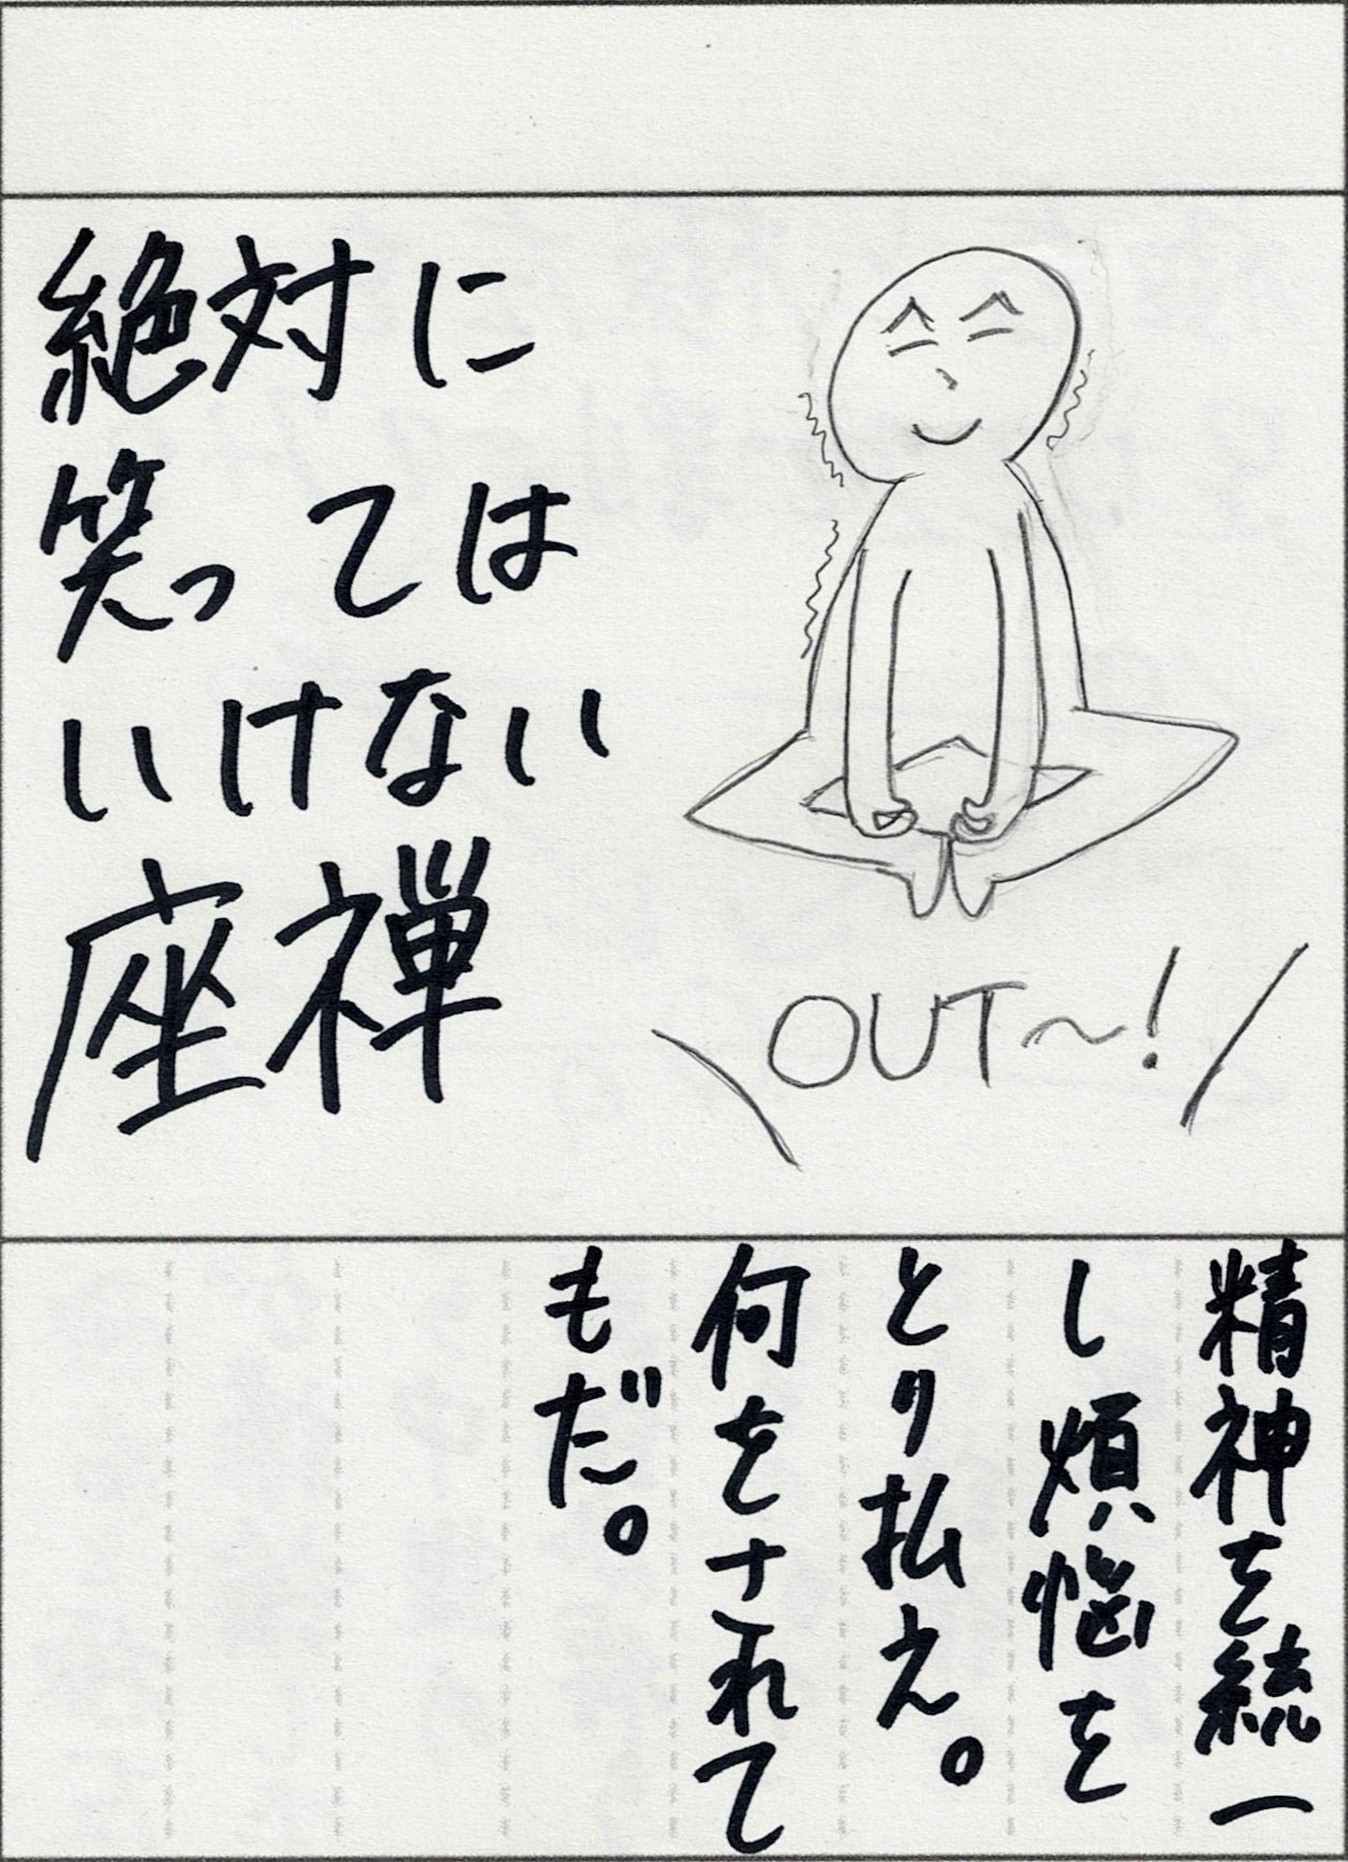 絶対に
笑っては
いけない
座禅
OUT〜!
精神を統一
し煩悩を
とり払え。
何をされて
もだ。